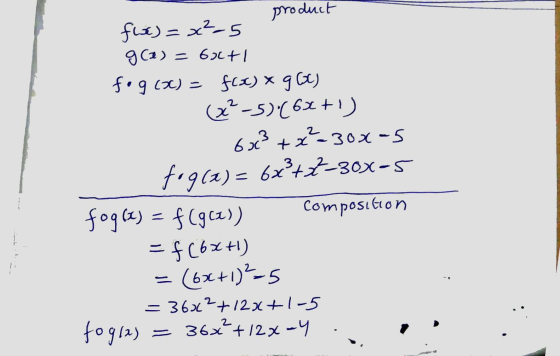 product
f(x) = x² - 5
g(x) = 6x + 1
f•g(x) = f(x) × g(x)
(x² - 5)·(6x + 1)
6x³ + x² - 30x - 5
f•g(x) = 6x³ + x² - 30x - 5
fog(x) = f(g(x)) Composition
= f(6x + 1)
= (6x + 1)² - 5
= 36x² + 12x + 1 - 5
fog(x) = 36x² + 12x - 4